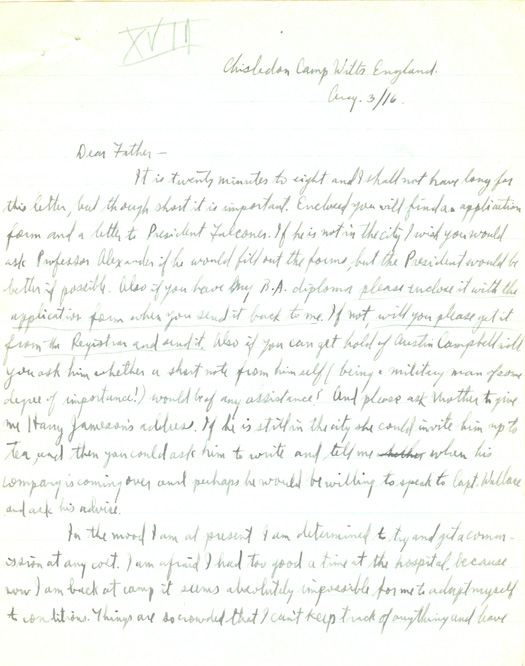 XVII
Chisledon Camp Wilts England.
Aug. 3/16.
Dear Father —
It is twenty minutes to eight and I shall not have long for
this letter, but though short it is important. Enclosed you will find an application
form and a letter to President Falconer. If he is not in the city I wish you would
ask Professor Alexander if he would fill out the forms, but the President would be
better if possible. Also if you have my B.A. diploma please enclose it with the
application form when you send it back to me. If not, will you please get it
from the Registrar and send it. Also if you can get hold of Austin Campbell will
you ask him whether a short note from himself (being a military man of some
degree of importance!) would be of any assistance? And please ask Mother to give
me Harry Jameson's address. If he is still in the city she could invite him up to
tea, and then you could ask him to write and tell me when his
company is coming over and perhaps he would be willing to speak to Capt. Wallace
and ask his advice.
In the mood I am at present I am determined to try and get a comm-
ission at any cost. I am afraid I had too good a time at the hospital, because
now I am back at camp it seems absolutely impossible for me to adapt myself
to conditions. Things are so crowded that I can't keep track of anything and have